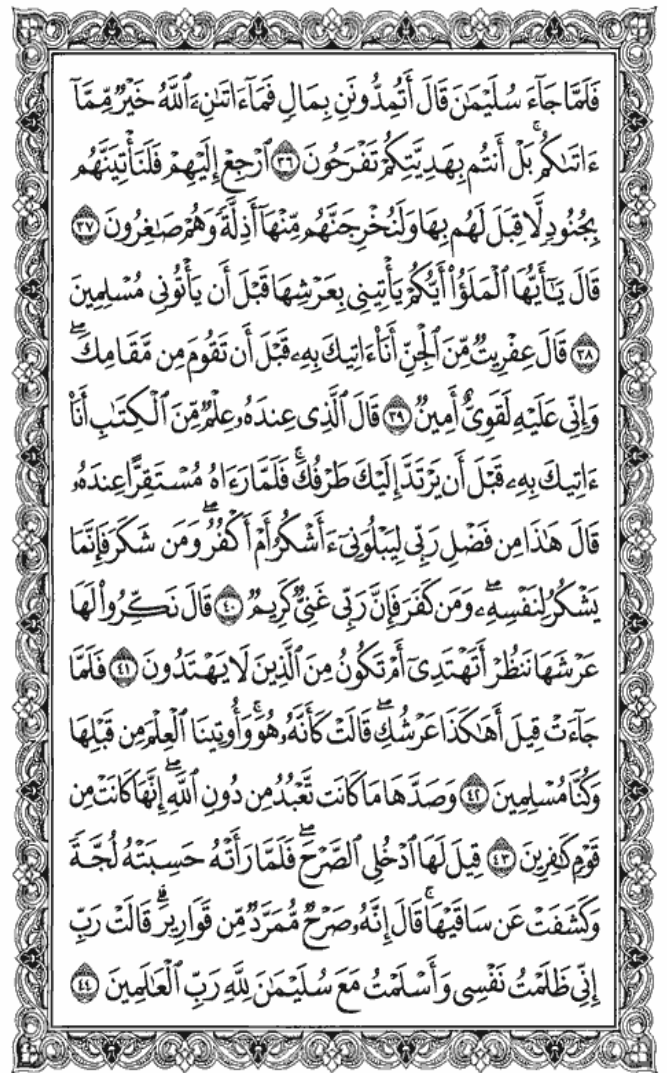 فَلَمَّا جَآءَ سُلَيْمَٰنَ قَالَ أَتُمِدُّونَنِ بِمَالٍ فَمَآ ءَاتَىٰنِۦَ ٱللَّهُ خَيْرٌ مِّمَّآ
ءَاتَىٰكُم ۚ بَلْ أَنتُم بِهَدِيَّتِكُمْ تَفْرَحُونَ ٣٦ ٱرْجِعْ إِلَيْهِمْ فَلَنَأْتِيَنَّهُم
بِجُنُودٍ لَّا قِبَلَ لَهُم بِهَا وَلَنُخْرِجَنَّهُم مِّنْهَآ أَذِلَّةً وَهُمْ صَٰغِرُونَ ٣٧
قَالَ يَٰٓأَيُّهَا ٱلْمَلَؤُا۟ أَيُّكُمْ يَأْتِينِى بِعَرْشِهَا قَبْلَ أَن يَأْتُونِى مُسْلِمِينَ
٣٨ قَالَ عِفْرِيتٌ مِّنَ ٱلْجِنِّ أَنَا۠ ءَاتِيكَ بِهِۦ قَبْلَ أَن تَقُومَ مِن مَّقَامِكَ ۖ
وَإِنِّى عَلَيْهِ لَقَوِىٌّ أَمِينٌ ٣٩ قَالَ ٱلَّذِى عِندَهُۥ عِلْمٌ مِّنَ ٱلْكِتَٰبِ أَنَا۠
ءَاتِيكَ بِهِۦ قَبْلَ أَن يَرْتَدَّ إِلَيْكَ طَرْفُكَ ۚ فَلَمَّا رَءَاهُ مُسْتَقِرًّا عِندَهُۥ
قَالَ هَٰذَا مِن فَضْلِ رَبِّى لِيَبْلُوَنِىٓ ءَأَشْكُرُ أَمْ أَكْفُرُ ۖ وَمَن شَكَرَ فَإِنَّمَا
يَشْكُرُ لِنَفْسِهِۦ ۖ وَمَن كَفَرَ فَإِنَّ رَبِّى غَنِىٌّ كَرِيمٌ ٤٠ قَالَ نَكِّرُوا۟ لَهَا
عَرْشَهَا نَنظُرْ أَتَهْتَدِىٓ أَمْ تَكُونُ مِنَ ٱلَّذِينَ لَا يَهْتَدُونَ ٤١ فَلَمَّا
جَآءَتْ قِيلَ أَهَٰكَذَا عَرْشُكِ ۖ قَالَتْ كَأَنَّهُۥ هُوَ ۚ وَأُوتِينَا ٱلْعِلْمَ مِن قَبْلِهَا
وَكُنَّا مُسْلِمِينَ ٤٢ وَصَدَّهَا مَا كَانَت تَّعْبُدُ مِن دُونِ ٱللَّهِ ۖ إِنَّهَا كَانَتْ مِن
قَوْمٍ كَٰفِرِينَ ٤٣ قِيلَ لَهَا ٱدْخُلِى ٱلصَّرْحَ ۖ فَلَمَّا رَأَتْهُ حَسِبَتْهُ لُجَّةً
وَكَشَفَتْ عَن سَاقَيْهَا ۚ قَالَ إِنَّهُۥ صَرْحٌ مُّمَرَّدٌ مِّن قَوَارِيرَ ۗ قَالَتْ رَبِّ
إِنِّى ظَلَمْتُ نَفْسِى وَأَسْلَمْتُ مَعَ سُلَيْمَٰنَ لِلَّهِ رَبِّ ٱلْعَٰلَمِينَ ٤٤